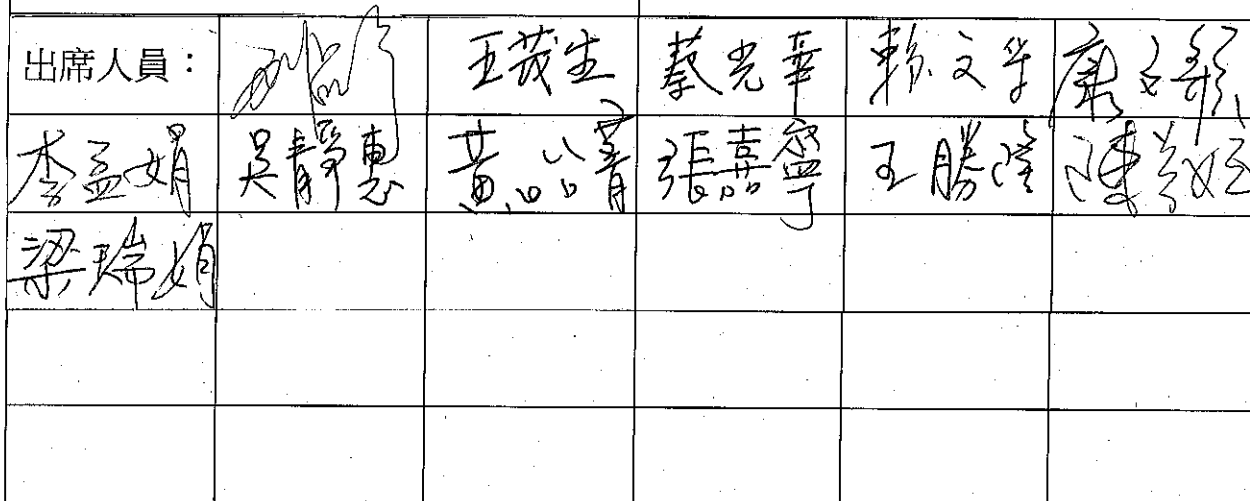 出席人員： 王茂生 蔡光華 賴文華 康文
李孟娟 吳靜惠 黃 張嘉寧 王勝隆 陳
梁瑞娟